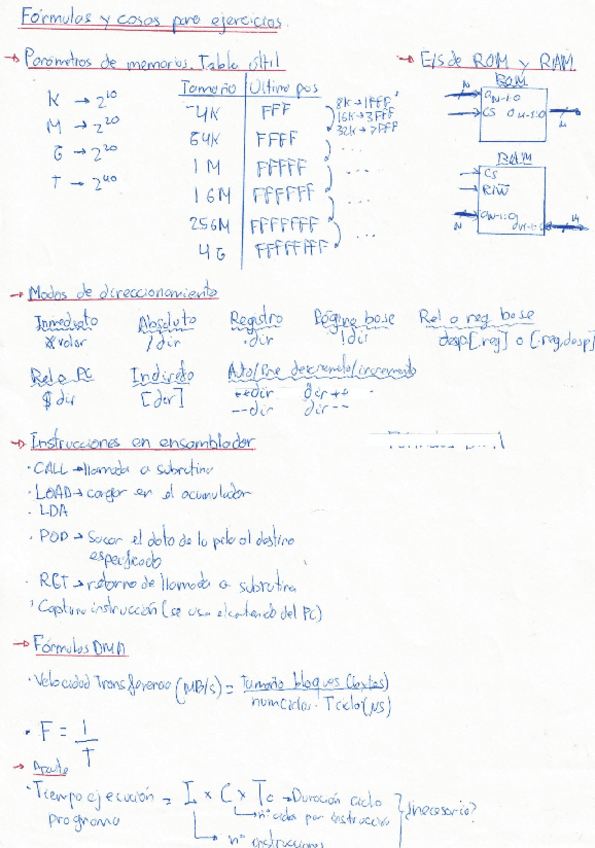 Fórmulas y cosas para ejercicios.
→ Parámetros de memorias. Tabla útil
K → 2^10
M → 2^20
G → 2^20
T → 2^40
Tamaño | Última pos
4K | FFF
64K | FFFF
1M | FFFFF
16M | FFFFFF
256M | FFFFFFF
4G | FFFFFFFF
8K → 1FFF
16K → 3FFF
32K → 7FFF
...
...
...
→ E/S de ROM y RAM
ROM
N
CS
M
RAM
CS
R/W
N
M
→ Modos de direccionamiento
Inmediato Absoluto Registro Página base Rel a reg base
#valor /dir .dir !dir desp[.reg] o [.reg,desp]
Rel a PC Indirecto Auto/Pre decremento/incremento
$dir [dir] ++dir dir++
--dir dir--
→ Instrucciones en ensamblador
· CALL → llamada a subrutina
· LOAD → cargar en el acumulador
· LDA
· POP → Sacar el dato de la pila al destino
especificado
· RET → retorno de llamada a subrutina
· Captura instrucción (se usa el contenido del PC)
→ Fórmulas DMA
· Velocidad Transferencia (MB/s) = Tamaño bloques (bytes)
num ciclos · T ciclo (μs)
· F = 1
T
→
· Tiempo ejecución = I × C × Tc → Duración ciclo
programa
→ nº ciclos por instrucción
¿necesario?
→ nº instrucciones